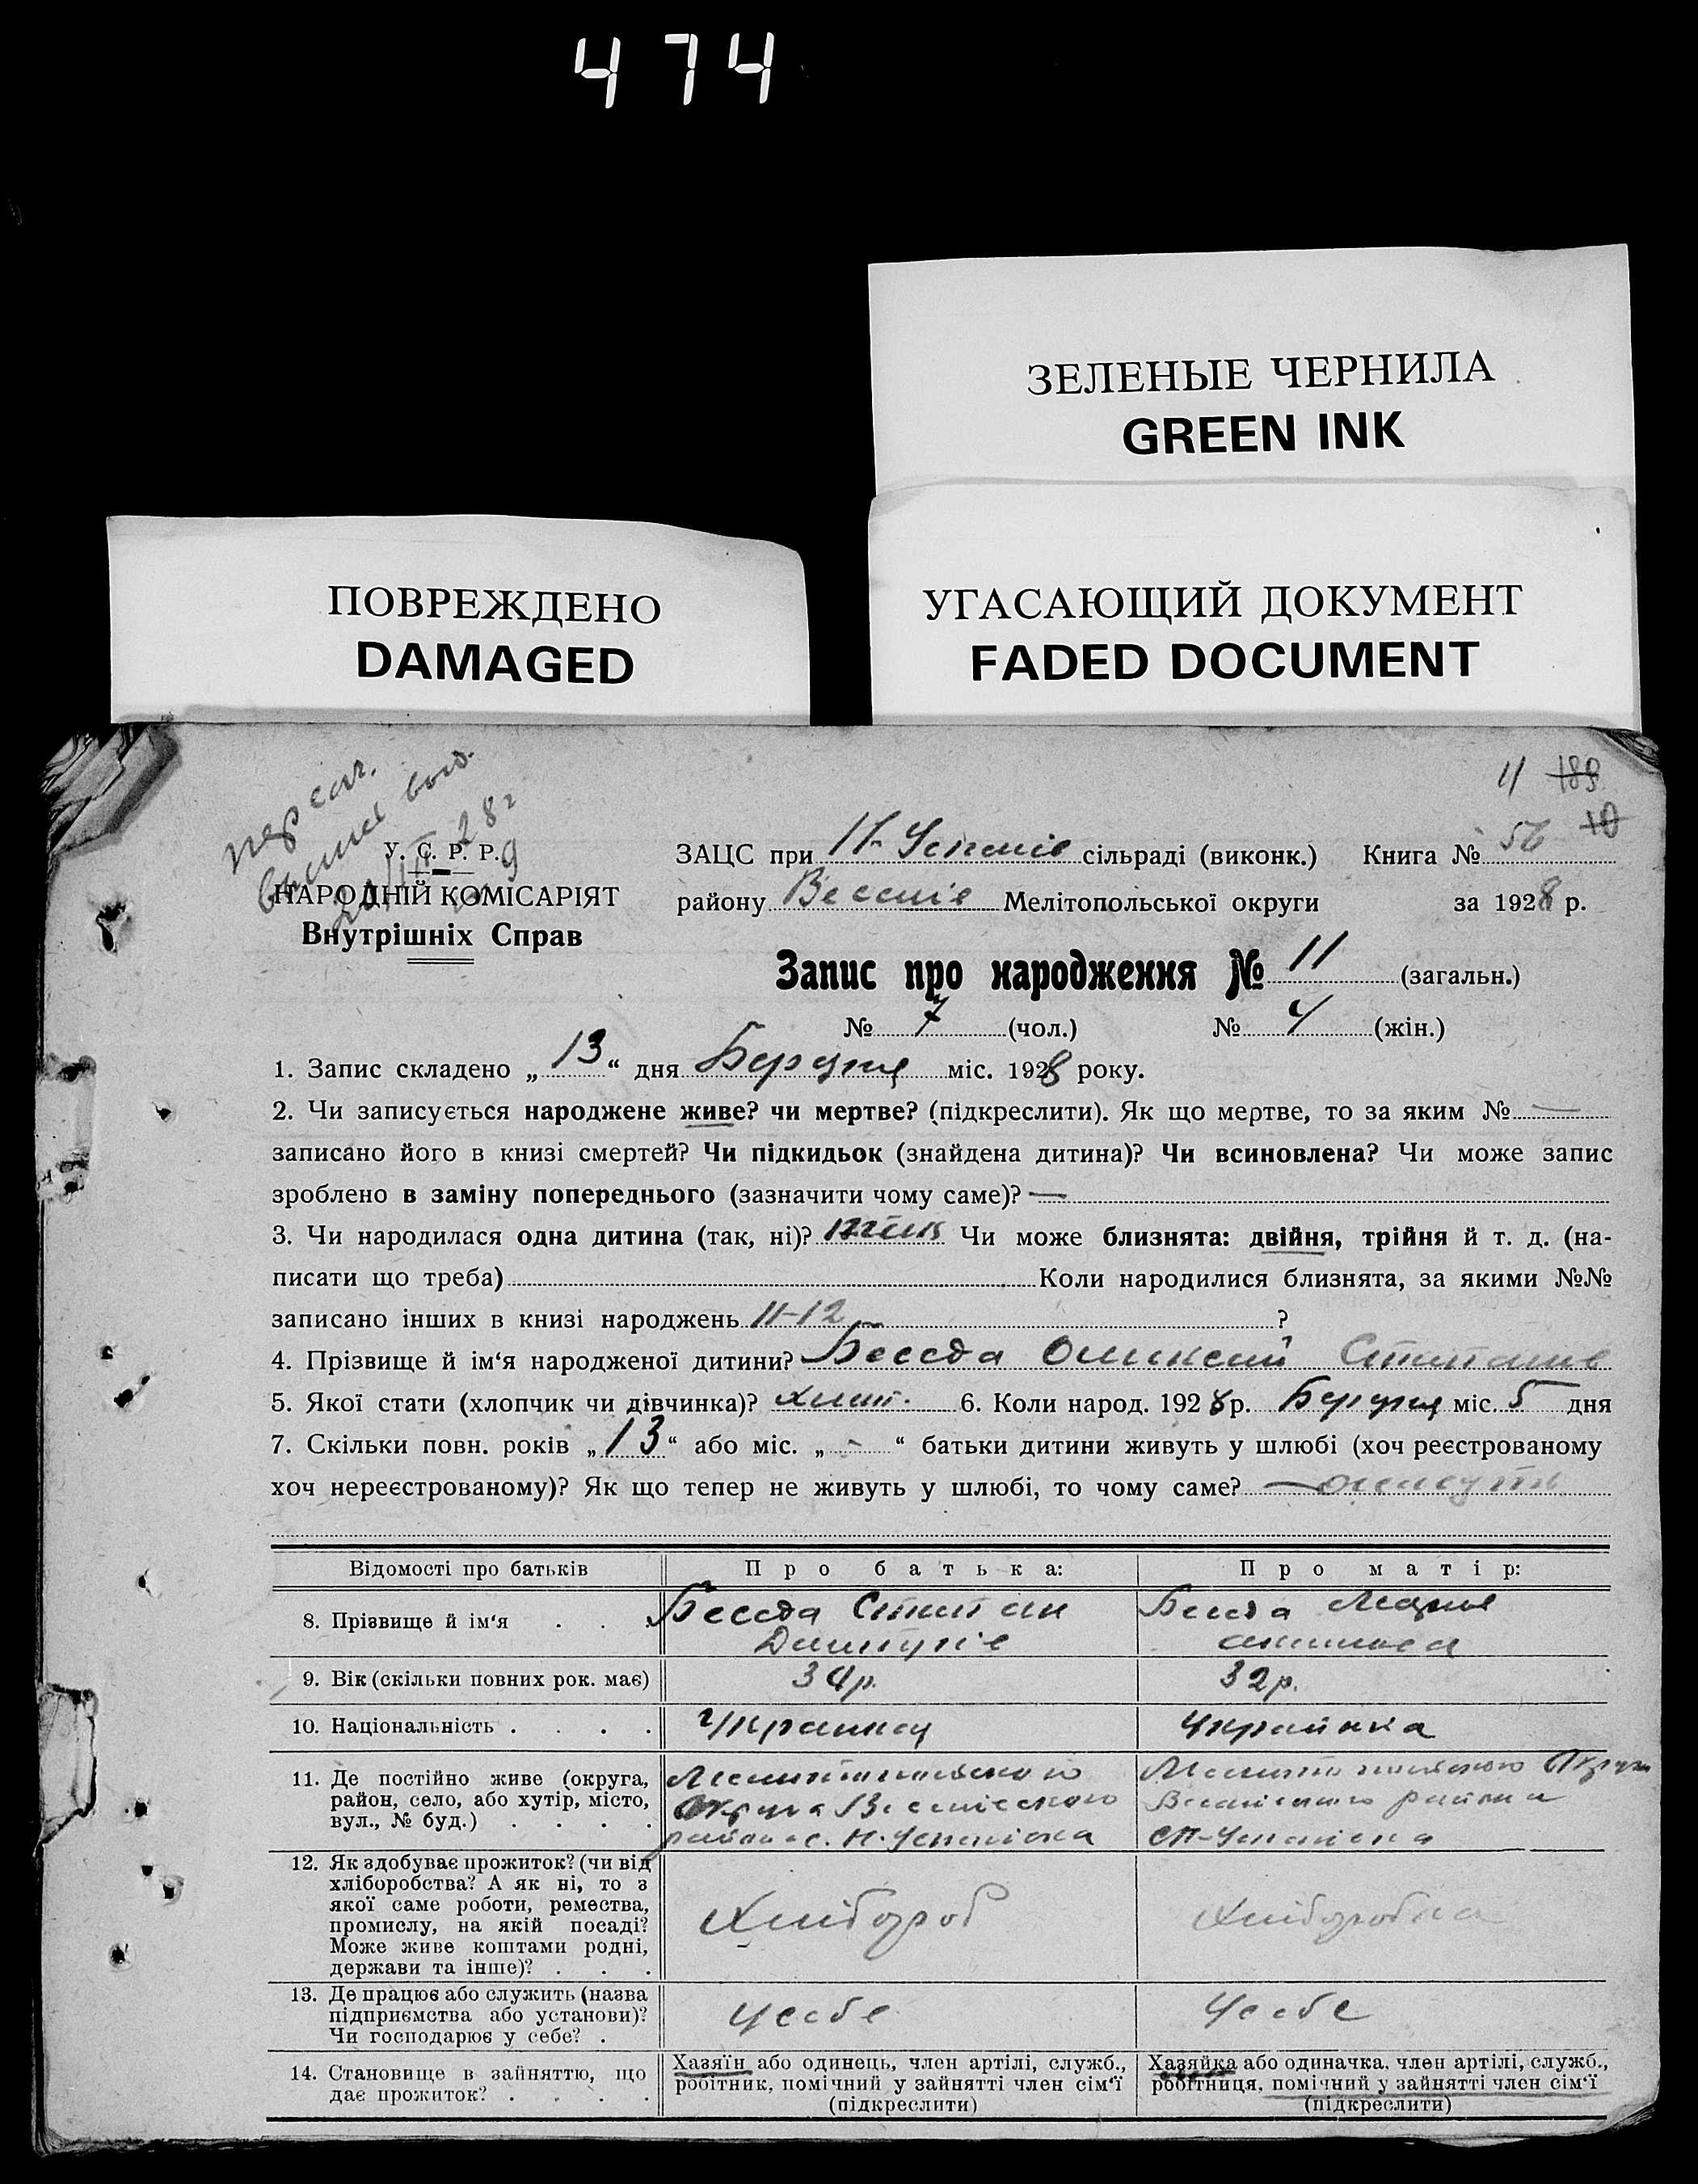 474
ЗЕЛЕНЫЕ ЧЕРНИЛА
GREEN INK
ПОВРЕЖДЕНО
DAMAGED
УГАСАЮЩИЙ ДОКУМЕНТ
FADED DOCUMENT
11 188
10
У. С. Р. Р.
НАРОДНІЙ КОМІСАРІЯТ
Внутрішніх Справ
ЗАЦС при Н-Успенів сільраді (виконк.) Книга № 56
району Веселів Мелітопольської округи за 1928 р.
Запис про народження № 11 (загальн.)
№ 7 (чол.) № 4 (жін.)
1. Запис складено „13“ дня Березня міс. 1928 року.
2. Чи записується народжене живе? чи мертве? (підкреслити). Як що мертве, то за яким № —
записано його в книзі смертей? Чи підкидьок (знайдена дитина)? Чи всиновлена? Чи може запис
зроблено в заміну попереднього (зазначити чому саме)? —
3. Чи народилася одна дитина (так, ні)? Чи може близнята: двійня, трійня й т. д. (на-
писати що треба) Коли народилися близнята, за якими №№
записано інших в книзі народжень 11-12 ?
4. Прізвище й ім‘я народженої дитини? Беседа Олексій Степанів
5. Якої стати (хлопчик чи дівчинка)? хлоп. 6. Коли народ. 1928 р. Березня міс. 5 дня
7. Скільки повн. років „13“ або міс. „-“ батьки дитини живуть у шлюбі (хоч реєстрованому
хоч нереєстрованому)? Як що тепер не живуть у шлюбі, то чому саме? — живуть
Відомості про батьків Про батька: Про матір:
8. Прізвище й ім‘я . . . Беседа Степан Беседа Марія
Дмитрів
9. Вік (скільки повних рок. має) 34 р. 32 р.
10. Національність . . . . Українец Українка
11. Де постійно живе (округа, Мелітопольского Мелітопольского Округи
район, село, або хутір, місто, Округа Веселівского Веселівского району
вул., № буд.) . . . . району с. Н. Успенівка Н-Успенівка
12. Як здобуває прожиток? (чи від
хліборобства? А як ні, то з
якої саме роботи, ремества, Хлібороб Хлиборобка
промислу, на якій посаді?
Може живе коштами родні,
держави та інше)? . . .
13. Де працює або служить (назва
підприємства або установи)? У себе У себе
Чи господарює у себе? .
14. Становище в зайняттю, що Хазяїн або одинець, член артілі, служб., Хазяйка або одиначка, член артілі, служб.,
дає прожиток? . . . . робітник, помічний у зайнятті член сім‘ї робітниця, помічний у зайнятті член сім‘ї
(підкреслити) (підкреслити)